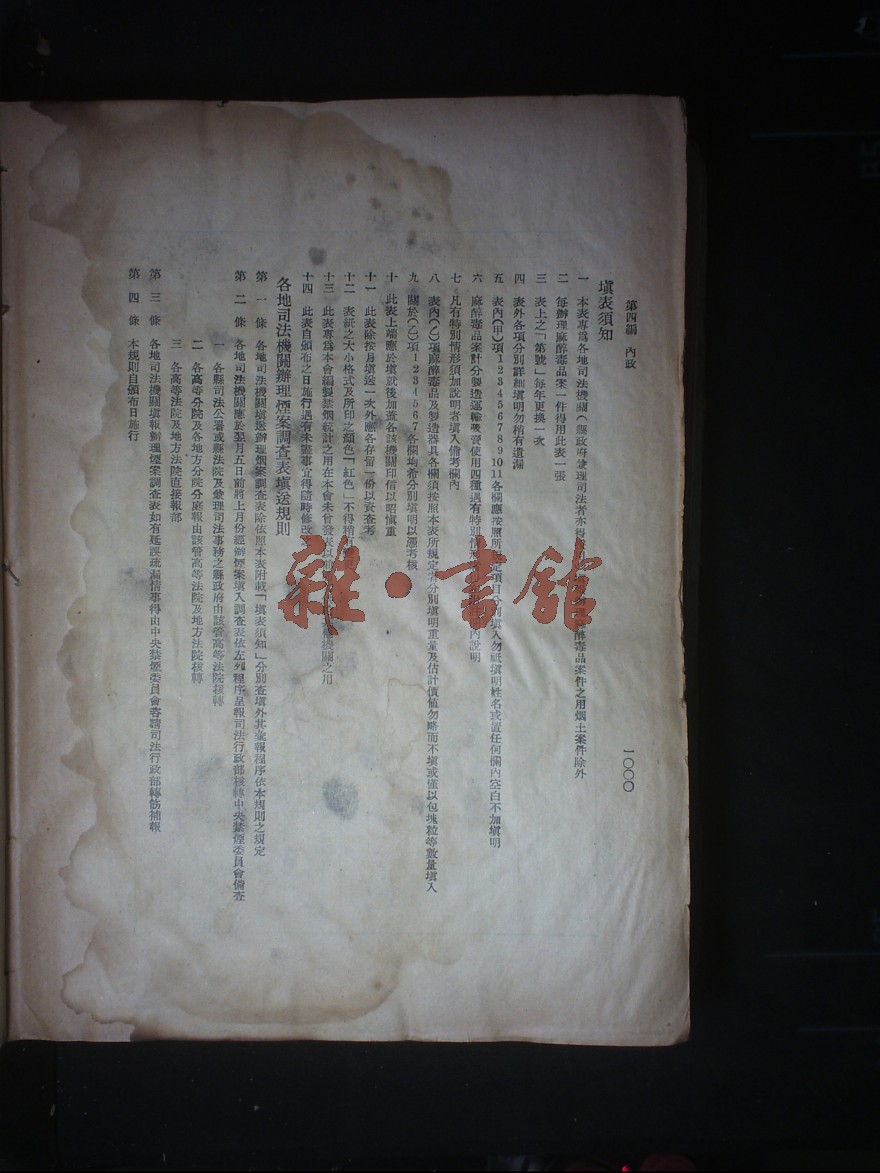 第四編　內政
一〇〇〇
填表須知
一　本表專爲各地司法機關(縣政府兼理司法者亦得醉毒品案件之用烟土案件除外
二　每辦理麻醉毒品案一件得用此表一張
三　表上之「第號」每年更換一次
四　表外各項分別詳細填明勿稍有遺漏
五　表內(甲)項1234567891011各欄應按照所定項目分別填入勿祗填明姓名或置任何欄內空白不加填明
六　麻醉毒品案計分製造運輸吸賣使用四種遇有特別情內說明
七　凡有特別情形須加說明者填入備考欄內
八　表內(乙)項麻醉毒品及製造器具各欄須按照本表所規定者分別填明重量及估計價值勿略而不填或僅以包塊粒等數量填入
九　關於(乙)項1234567各欄均希分別填明以憑考核
十　此表上端應於填就後加蓋各該機關印信以昭愼重
十一　此表除按月填送一次外應各存留一份以資查考
十二　表紙之大小格式及所印之顏色「紅色」不得稍有
十三　此表專爲本會編製禁烟統計之用在本會未曾發表以前機關之用
十四　此表自頒布之日施行遇有未盡事宜得隨時修改
各地司法機關辦理煙案調查表填送規則
第一條　各地司法機關填送辦理烟案調查表除依照本表附載「填表須知」分別查填外其彙報程序依本規則之規定
第二條　各地司法機關應於翌月五日前將上月份經辦煙案填入調查表依左列程序呈報司法行政部核轉中央禁煙委員會備查
一　各縣司法公署或縣法院及兼理司法事務之縣政府由該管高等法院核轉
二　各高等分院及各地方分院分庭報由該管高等法院及地方法院核轉
三　各高等法院及地方法院直接報部
第三條　各地司法機關填報辦理煙案調查表如有延誤疏漏情事得由中央禁煙委員會咨請司法行政部轉飭補報
第四條　本規則自頒布日施行
雜·書館